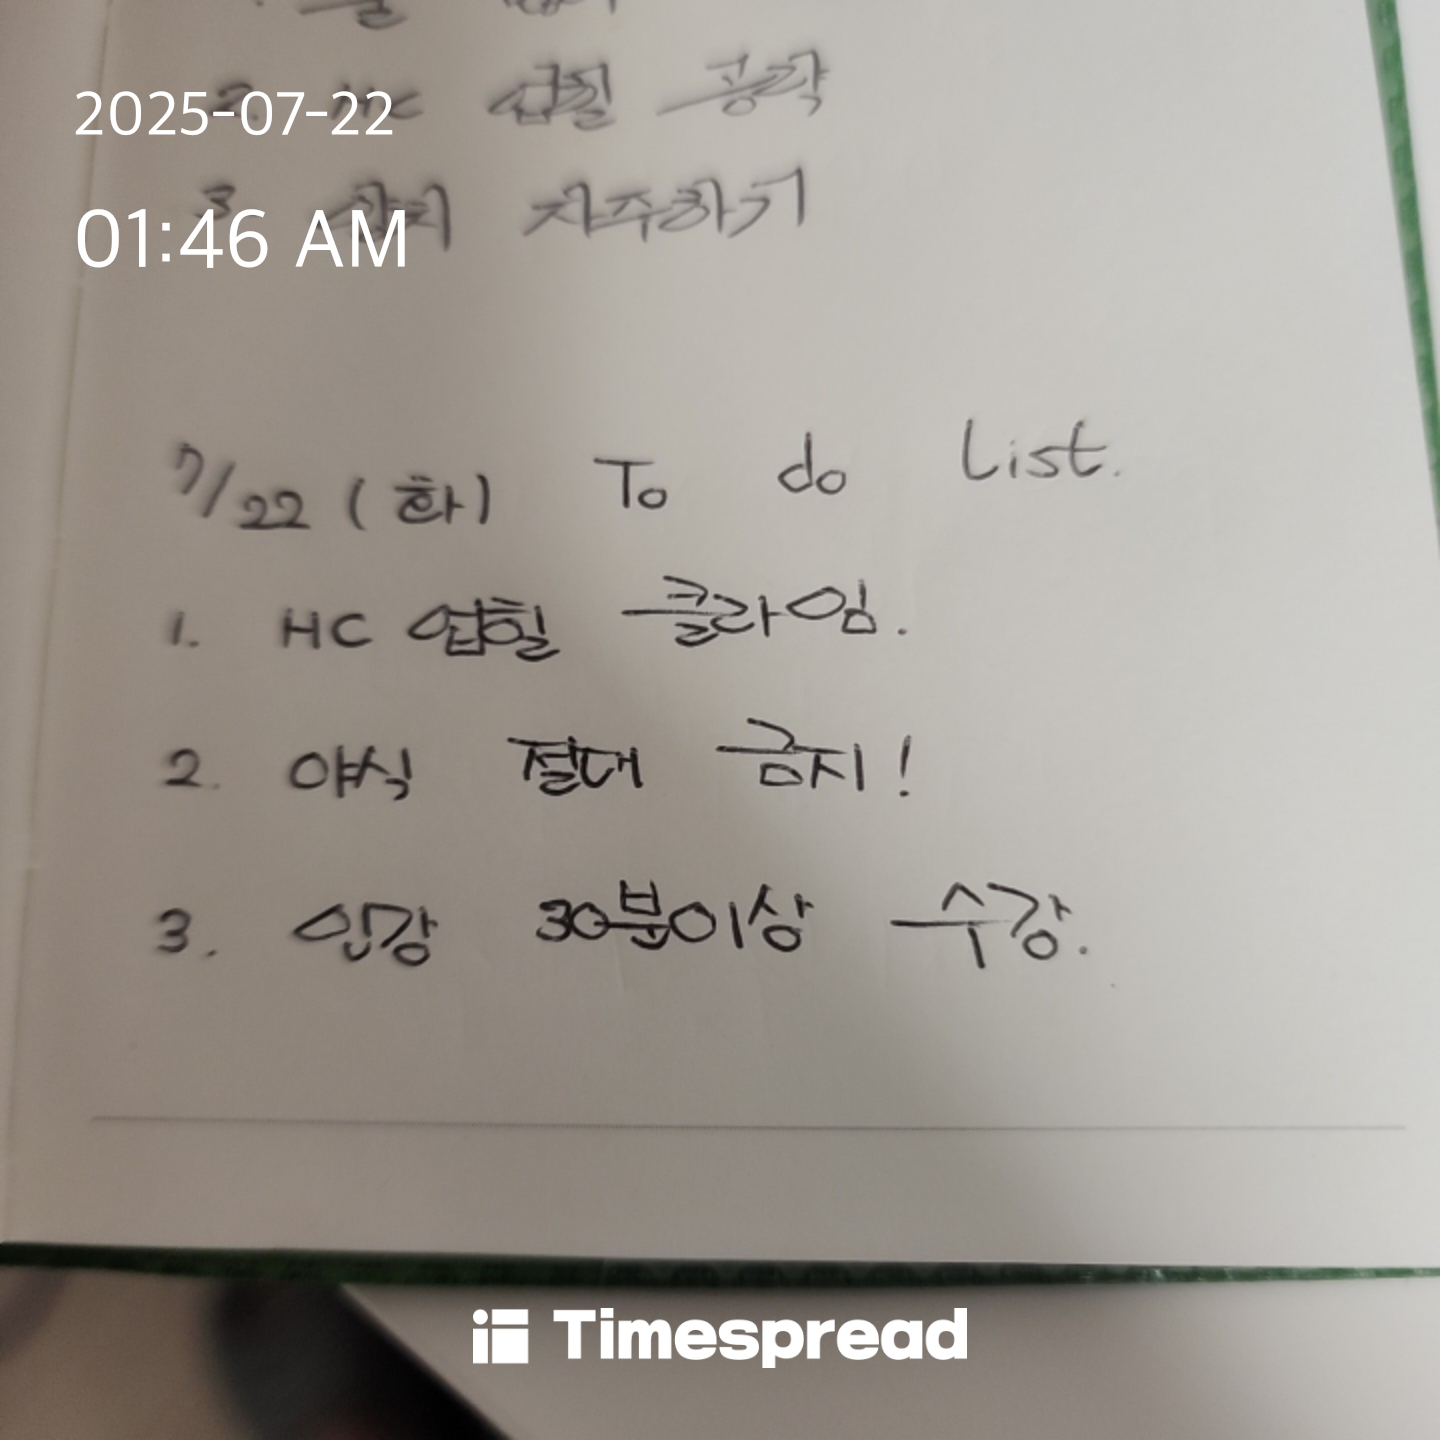 2. HC 업힐 공략
3. 자주하기
2025-07-22
01:46 AM
7/22 (화) To do list.
1. HC 업힐 클라임.
2. 야식 절대 금지!
3. 인강 30분이상 수강.
Timespread